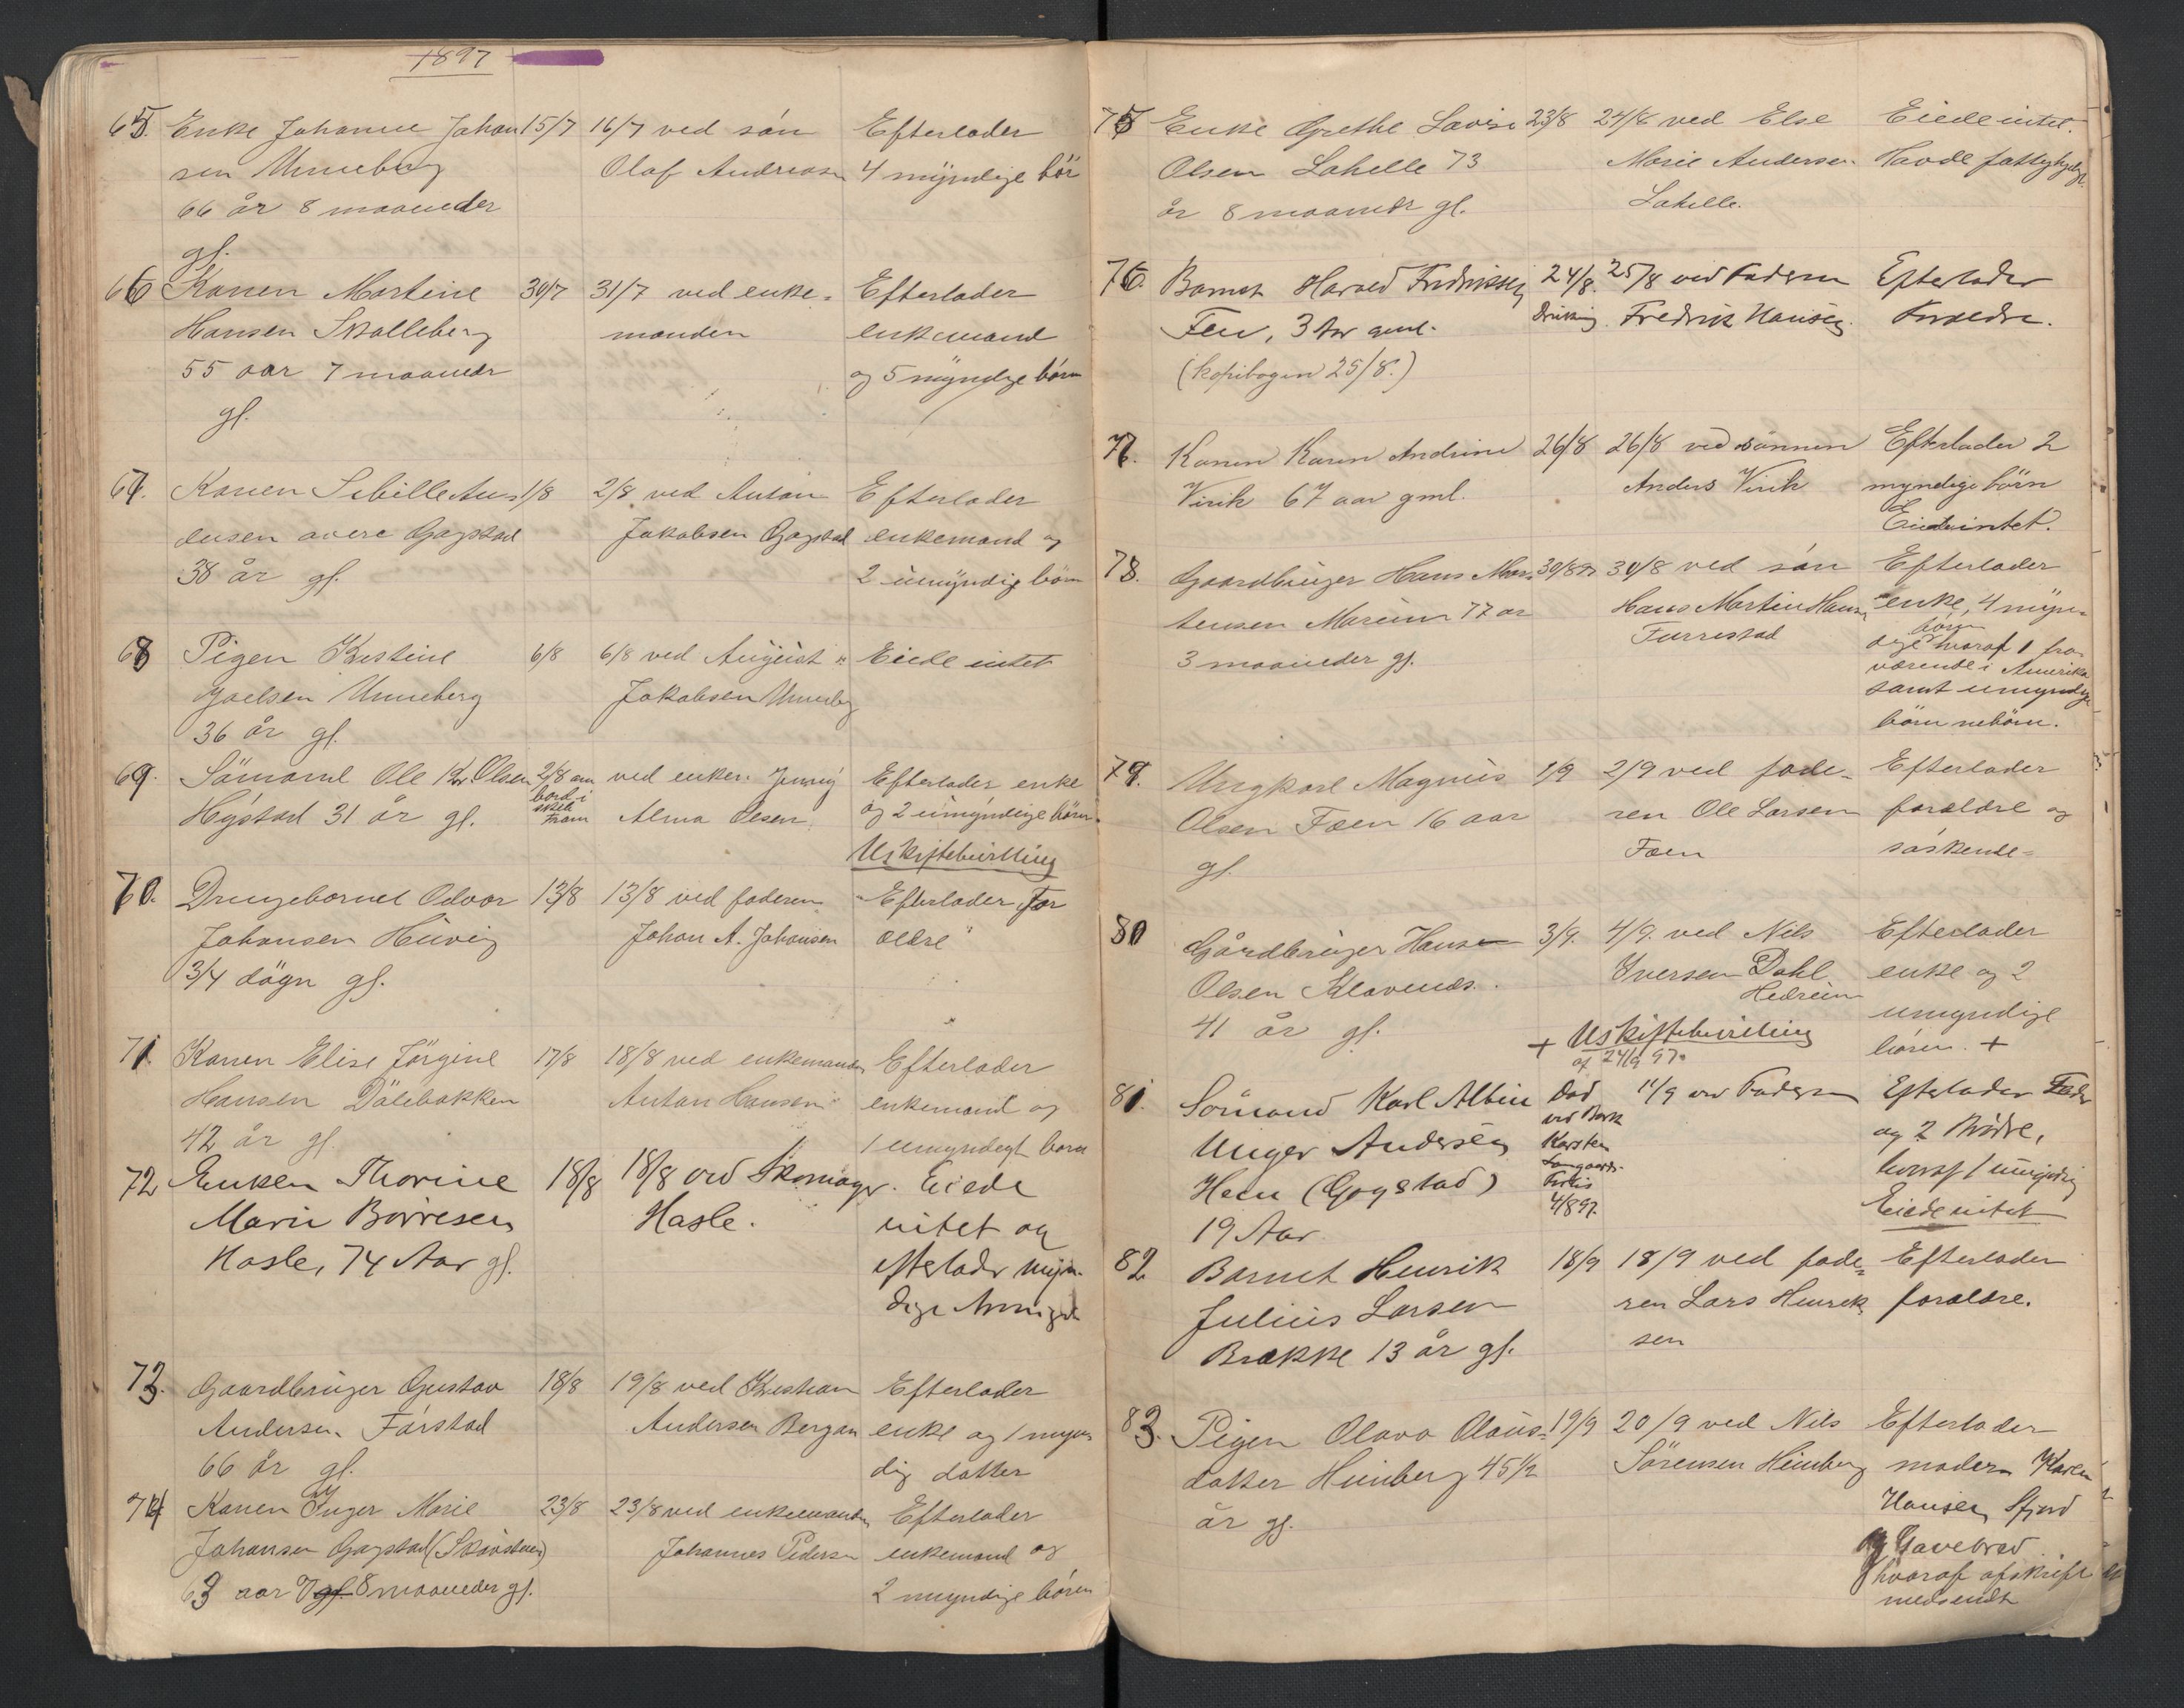 1897
65. Enke Johanne Johan 15/7 16/7 ved søn Efterlader
sen Unneberg Olaf Andreasen 4 myndige bör
66 år 8 maaneder
gl.
66 Konen Martine 30/7 31/7 ved enke= Efterlader
Hansen Skalleberg manden enkemand
55 aar 7 maaneder og 5 myndige börn
gl.
67. Konen Sibille An 1/8 2/8 ved Anton Efterlader
densen Gogstad Jakobsen Gogstad enkemand og
38 år gl. 2 umyndige börn
68 Pigen Kristine 6/8 6/8 ved August Eiede intet
Joelsen Unneberg Jakobsen Unneberg
36 år gl.
69. Sömand Ole Kr. Olsen 2/8 om ved enken Jenny Efterlader enke
bord i
Höstad 31 år gl. Fram Alma Olsen og 2 umyndige börn
Uskiftebevilling
70. Drengebarnet Odvar 13/8 13/8 ved faderen Efterlader For
Johansen Huvig Johan A. Johansen ældre
3/4 dögn gl.
71. Konen Elise Jörgine 17/8 18/8 ved enkemanden Efterlader
Hansen Dölebakken Anton Hansen enkemand og
42 år gl. 1 umyndigt barn
72 Enken Thorine 18/8 18/8 ved Skomager Eiede
Marie Borresen Hasle. intet og
Hasle, 74 Aar gl. efterlader myn-
dige
73. Gaardbruger Gustav 18/8 19/8 ved Kristian Efterlader
Andersen Förstad Andersen Bergan enke og 1 myn
66 år gl. dig datter
74 Konen Inger Marie 23/8 23/8 ved enkemanden Efterlader
Johansen Gogstad (Skovstuen) Johannes Pedersen enkemand og
63 aar 8 maaneder gl. 2 myndige börn
75 Enke Grethe Lovise 23/8 24/8 ved Else Eiede intet.
Olsen Lahelle 73 Marie Andersen Havde fattighjelp
år 8 maaneder gl. Lahelle.
76. Barnet Harald Fredriksen 24/8. 25/8 ved Faderen Efterlader
Fen, 3 Aar gml. Drukning Fredrik Hansen. Forældre.
(kopibogen 25/8.)
77. Konen Karen Andrine 26/8 26/8 ved sønnen Efterlader 2
Virik 67 aar gml. Anders Virik myndige børn
Eiede intet.
78. Gaardbruger Hans Mar 30/8 97 30/8 ved søn Efterlader
tensen Marum 77 aar Hans Martin Hansen enke, 4 myn-
börn
3 maaneder gl. Furrestad dige hvoraf 1 fra-
værende i Amerika
samt umyndige
börnebörn.
79. Ungkarl Magnus 1/9 2/9 ved fade- Efterlader
Olsen Foen 16 aar ren Ole Larsen forældre og
gl. Foen söskende=
80 Gårdbruger Hans 3/9. 4/9. ved Nils Efterlader
Olsen Klavenæs. Iversen Dahl enke og 2
Hedrum
41 år gl. umyndige
+ Uskiftebevilling börn. +
af 24/9 97.
81. Sømand Karl Albin Død 11/9 ved Faderen Efterlader Fader
Unger Andersen ved Bark og 2 Brødre,
Hem (Gogstad) Karsten hvoraf 1 umyndig
19 Aar 4/8 97. Eiede intet
82 Barnet Henrik 18/9 18/9 ved fade= Efterlader
Julius Larsen ren Lars Henrik forældre.
Brække 13 år gl. sen
83. Pigen Olava Olaus- 19/9 20/9 ved Nils Efterlader
datter Himberg 45 1/2 Sörensen Himberg moderen Karen
år gl. Hansen Sfjord
og Gavebrev
hvoraf afskrift
medsendt